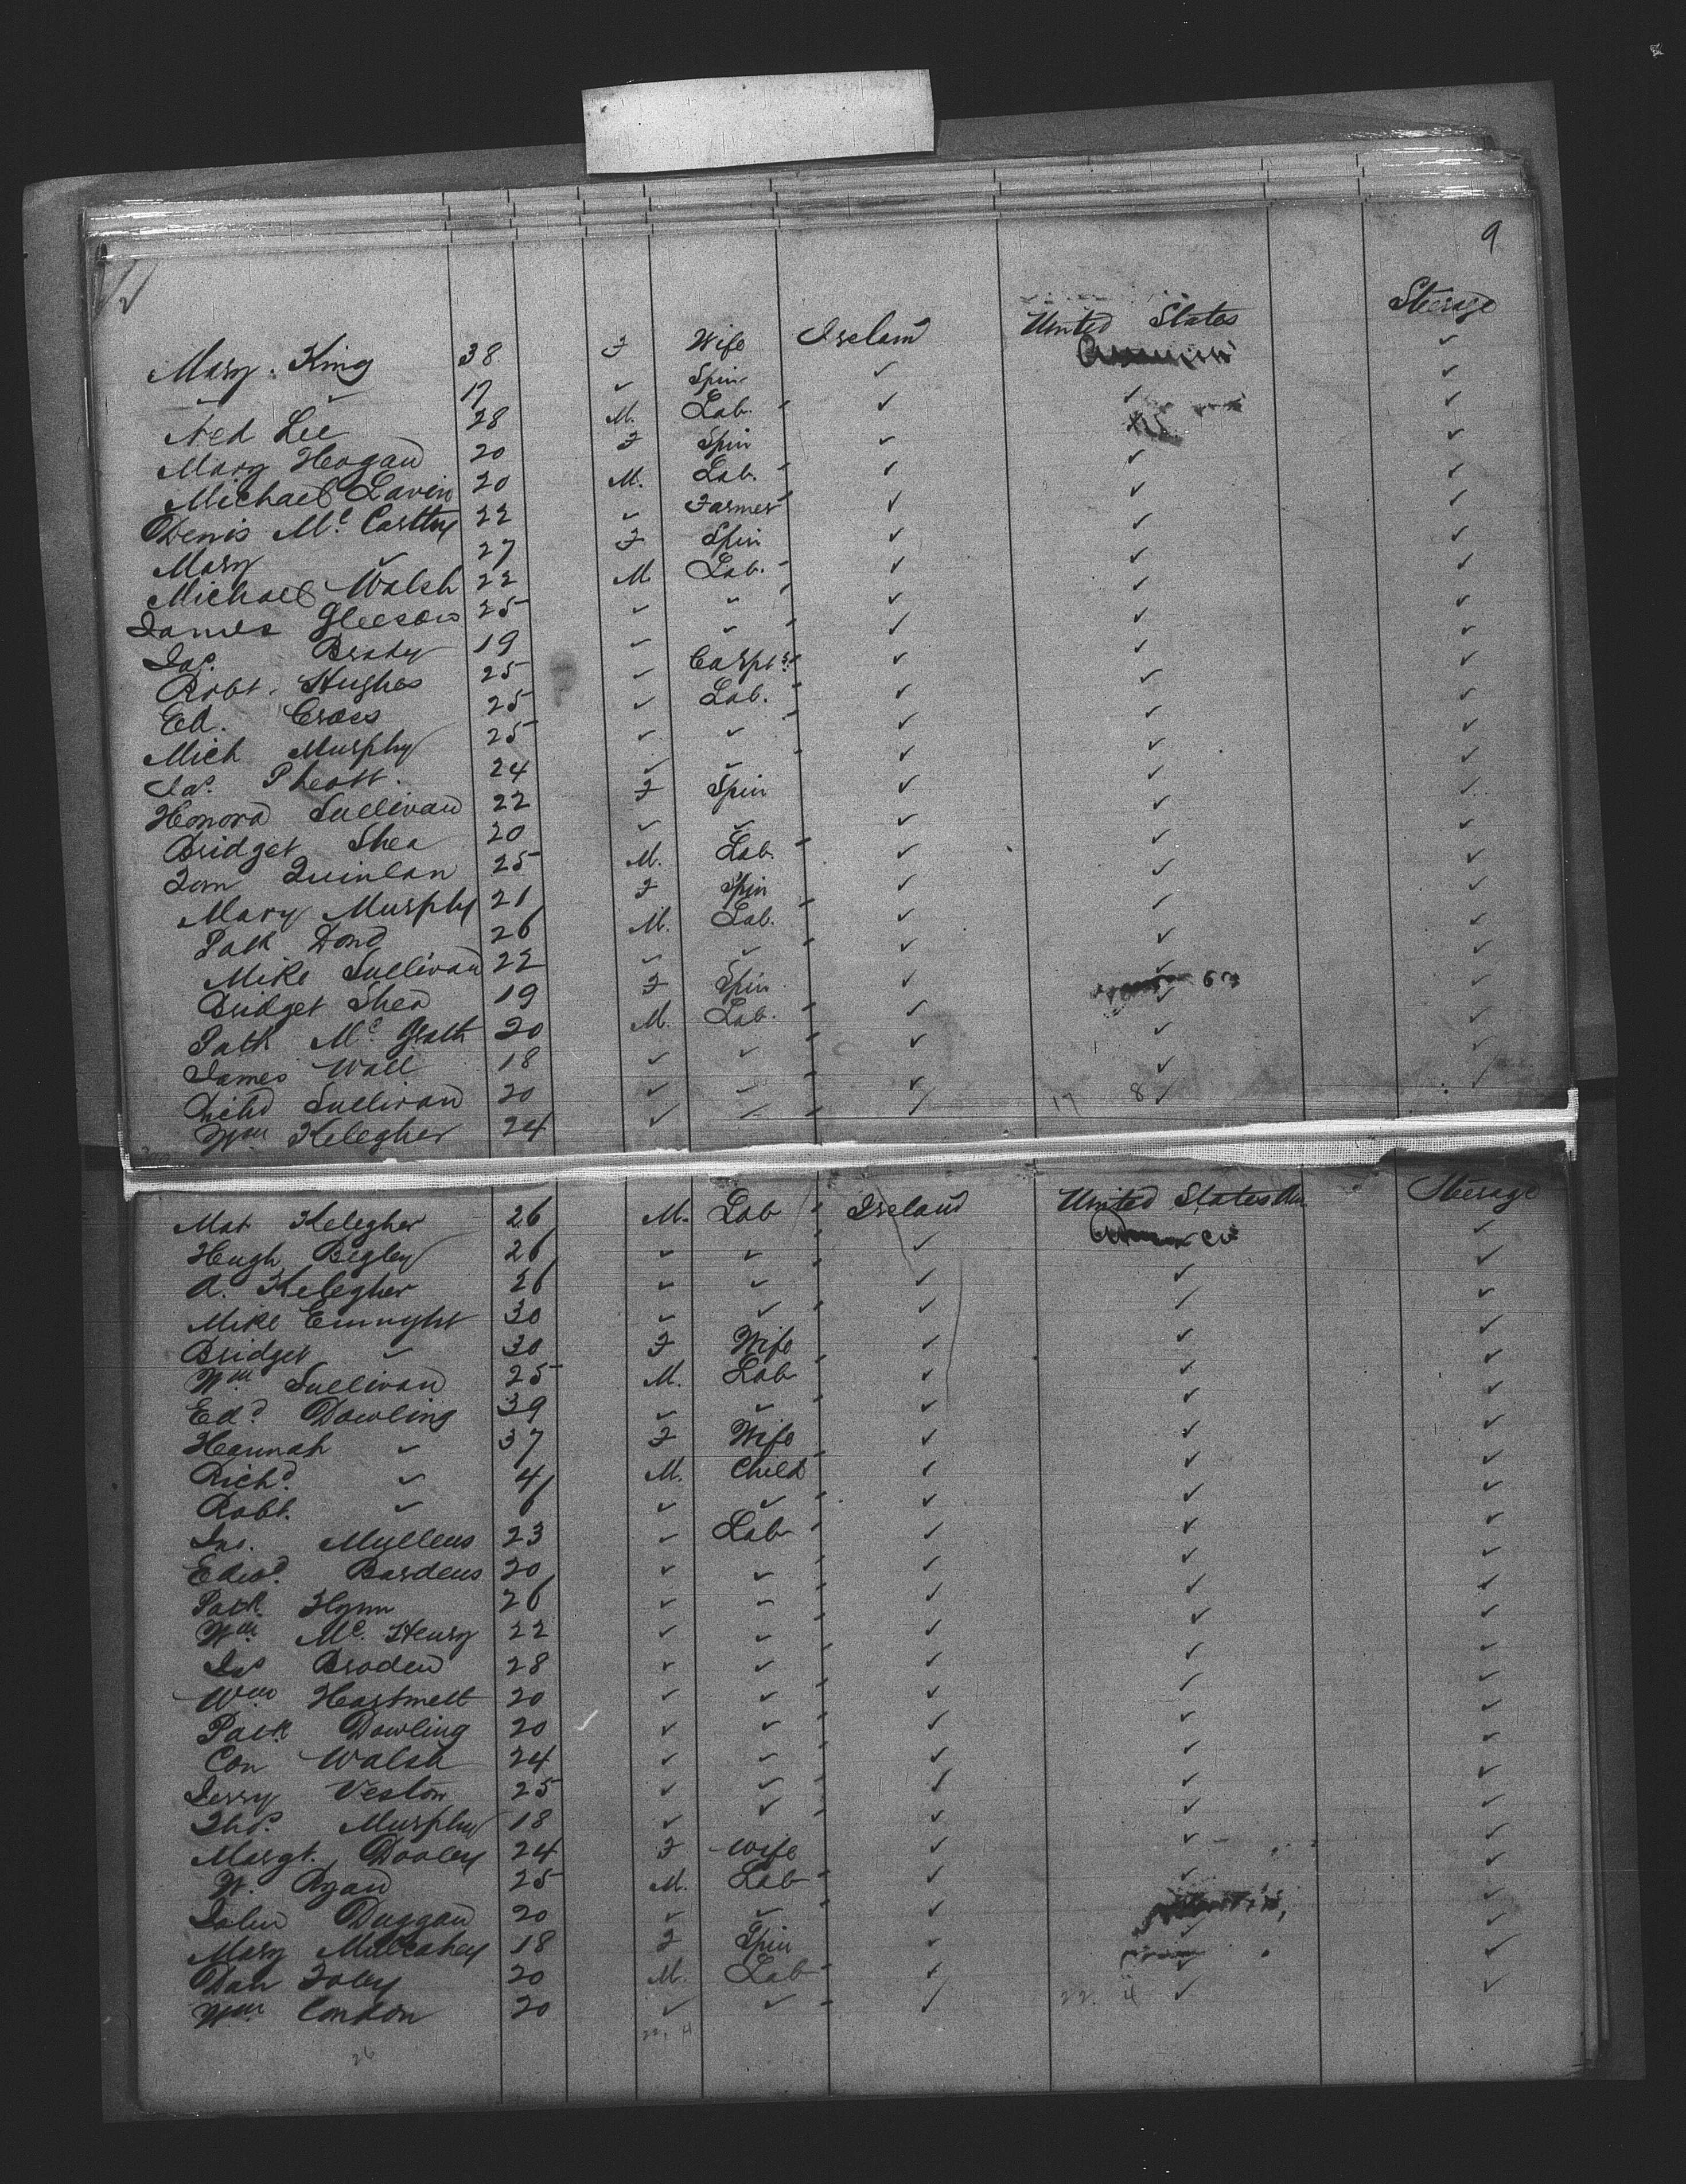 9
Mary King 38 F Wife Ireland United States Steerage
✓ ✓ 17 ✓ Spin ✓ ✓ ✓
Ned Lee 28 M. Lab. ✓ ✓ ✓
Mary Hogan 20 F Spin ✓ ✓ ✓
Michael Lavin 20 M. Lab. ✓ ✓ ✓
Denis Mc Carthy 22 ✓ Farmer ✓ ✓ ✓
Mary ✓ 27 F Spin ✓ ✓ ✓
Michael Walsh 22 M Lab. ✓ ✓ ✓
James Gleeson 25 ✓ ✓ ✓ ✓ ✓
Jas. Brady 19 ✓ ✓ ✓ ✓ ✓
Robt. Hughes 25 ✓ Carptr ✓ ✓ ✓
Ed. Cross 25 ✓ Lab. ✓ ✓ ✓
Mich Murphy 25 ✓ ✓ ✓ ✓ ✓
Jas. 24 ✓ ✓ ✓ ✓ ✓
Honora Sullivan 22 F Spin ✓ ✓ ✓
Bridget Shea 20 ✓ ✓ ✓ ✓ ✓
Tom Quinlan 25 M. Lab. ✓ ✓ ✓
Mary Murphy 21 F Spin ✓ ✓ ✓
Patk 26 M. Lab. ✓ ✓ ✓
Mike Sullivan 22 ✓ ✓ ✓ ✓ ✓
Bridget Shea 19 F Spin ✓ ✓ ✓
Patk Mc Grath 20 M. Lab. ✓ ✓ ✓
James Wall 18 ✓ ✓ ✓ ✓ ✓
Richd Sullivan 20 ✓ ✓ ✓ ✓ ✓
Wm Kelegher 24 ✓ ✓ ✓ 17 8 ✓ ✓
Mat Kelegher 26 M. Lab Ireland United States Steerage
Hugh Begley 26 ✓ ✓ ✓ ✓
A. Kelegher 26 ✓ ✓ ✓ ✓ ✓
Mike Enright 30 ✓ ✓ ✓ ✓ ✓
Bridget ✓ 30 F Wife ✓ ✓ ✓
Wm Sullivan 25 M. Lab ✓ ✓ ✓
Edd Dowling 39 ✓ ✓ ✓ ✓ ✓
Hannah ✓ 37 F Wife ✓ ✓ ✓
Richd. ✓ 4 M. Child ✓ ✓ ✓
Robt. ✓ 6 ✓ ✓ ✓ ✓ ✓
Jas. Mullens 23 ✓ Lab ✓ ✓ ✓
Edwd. Bardens 20 ✓ ✓ ✓ ✓ ✓
Patk. Flynn 26 ✓ ✓ ✓ ✓ ✓
Wm Mc. Henry 22 ✓ ✓ ✓ ✓ ✓
Jas Broden 28 ✓ ✓ ✓ ✓ ✓
Wm Hartnett 20 ✓ ✓ ✓ ✓ ✓
Patk Dowling 20 ✓ ✓ ✓ ✓ ✓
Con Walsh 24 ✓ ✓ ✓ ✓ ✓
Jerry Veston 25 ✓ ✓ ✓ ✓ ✓
Ths. Murphy 18 ✓ ✓ ✓ ✓ ✓
Margt. Dooley 24 F Wife ✓ ✓ ✓
W. Ryan 25 M. Lab ✓ ✓ ✓
John Duggan 20 ✓ ✓ ✓ ✓ ✓
Mary Mulcahey 18 F Spin ✓ ✓ ✓
Dan Foley 20 M. Lab ✓ ✓ ✓
Wm. Condon 20 ✓ ✓ ✓ 22. 4 ✓ ✓
22, 4
26